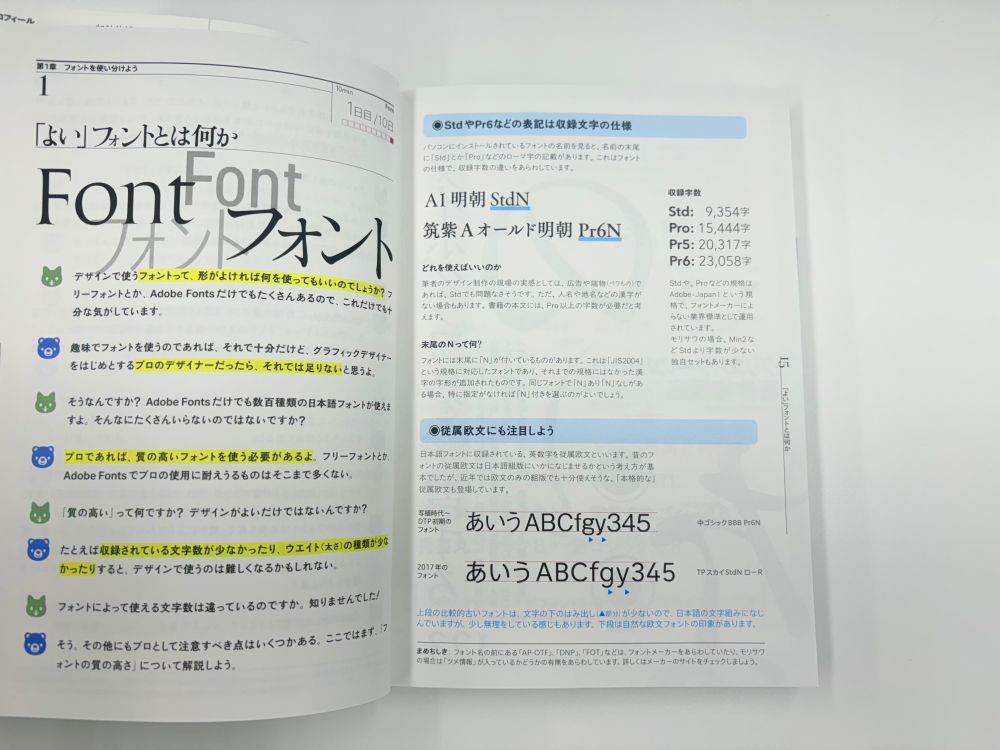 ロフィール
第1章 フォントを使い分けよう
1
10min
Font
1日目/10日
「よい」フォントとは何か
Font
フォント
Font
フォント
デザインで使うフォントって、形がよければ何を使ってもいいのでしょうか? フ
リーフォントとか、Adobe Fontsだけでもたくさんあるので、これだけでも十
分な気がしています。
趣味でフォントを使うのであれば、それで十分だけど、グラフィックデザイナー
をはじめとするプロのデザイナーだったら、それでは足りないと思うよ。
そうなんですか? Adobe Fontsだけでも数百種類の日本語フォントが使えま
すよ。そんなにたくさんいらないのではないですか?
プロであれば、質の高いフォントを使う必要があるよ。フリーフォントとか、
Adobe Fontsでプロの使用に耐えうるものはそこまで多くない。
「質の高い」って何ですか? デザインがよいだけではないんですか?
たとえば収録されている文字数が少なかったり、ウエイト(太さ)の種類が少な
かったりすると、デザインで使うのは難しくなるかもしれない。
フォントによって使える文字数は違っているのですか。知りませんでした!
そう。その他にもプロとして注意すべき点はいくつかある。ここではまず、「フ
ォントの質の高さ」について解説しよう。
◉StdやPr6などの表記は収録文字の仕様
パソコンにインストールされているフォントの名前を見ると、名前の末尾
に「Std」とか「Pro」などのローマ字の記載があります。これはフォント
の仕様で、収録字数の違いをあらわしています。
A1明朝 StdN
筑紫Aオールド明朝 Pr6N
どれを使えばいいのか
筆者のデザイン制作の現場の実感としては、広告や端物(ペラもの)で
あれば、Stdでも問題なさそうです。ただ、人名や地名などの漢字が
ない場合もあります。書籍の本文には、Pro以上の字数が必要だと考
えます。
末尾のNって何?
フォントには末尾に「N」が付いているものがあります。これは「JIS2004」
という規格に対応したフォントであり、それまでの規格にはなかった漢
字の字形が追加されたものです。同じフォントで「N」あり「N」なしがあ
る場合、特に指定がなければ「N」付きを選ぶのがよいでしょう。
収録字数
Std: 9,354字
Pro: 15,444字
Pr5: 20,317字
Pr6: 23,058字
Stdや、Proなどの規格は
Adobe-Japan1という規
格で、フォントメーカーによ
らない業界標準として運用
されています。
モリサワの場合、Min2な
どStdより字数が少ない
独自セットもあります。
15
「よい」フォントとは何か
◉従属欧文にも注目しよう
日本語フォントに収録されている、英数字を従属欧文といいます。昔のフ
ォントの従属欧文は日本語組版にいかになじませるかという考え方が基
本でしたが、近年では欧文のみの組版でも十分使えそうな、「本格的な」
従属欧文も登場しています。
写植時代〜
DTP初期の
フォント
あいうABCfgy345
中ゴシックBBB Pr6N
2017年の
フォント
あいうABCfgy345
TPスカイ StdN ローR
上段の比較的古いフォントは、文字の下のはみ出し(▲部分)が少ないので、日本語の文字組みになじ
んでいますが、少し無理をしている感じもあります。下段は自然な欧文フォントの印象があります。
まめちしき: フォント名の前にある「AP-OTF」、「DNP」、「FOT」などは、フォントメーカーをあらわしていたり、モリサワ
の場合は「ツメ情報」が入っているかどうかの有無をあらわしています。詳しくはメーカーのサイトをチェックしましょう。